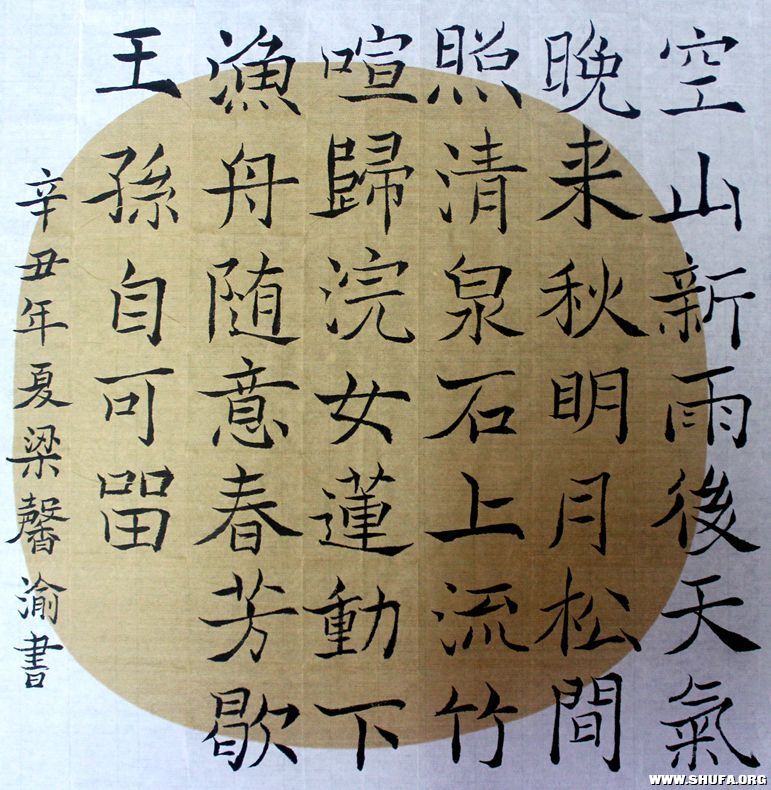 空山新雨後天氣
晚来秋明月松間
照清泉石上流竹
喧歸浣女蓮動下
漁舟随意春芳歇
王孫自可畱
辛丑年夏梁馨渝書
WWW.SHUFA.ORG